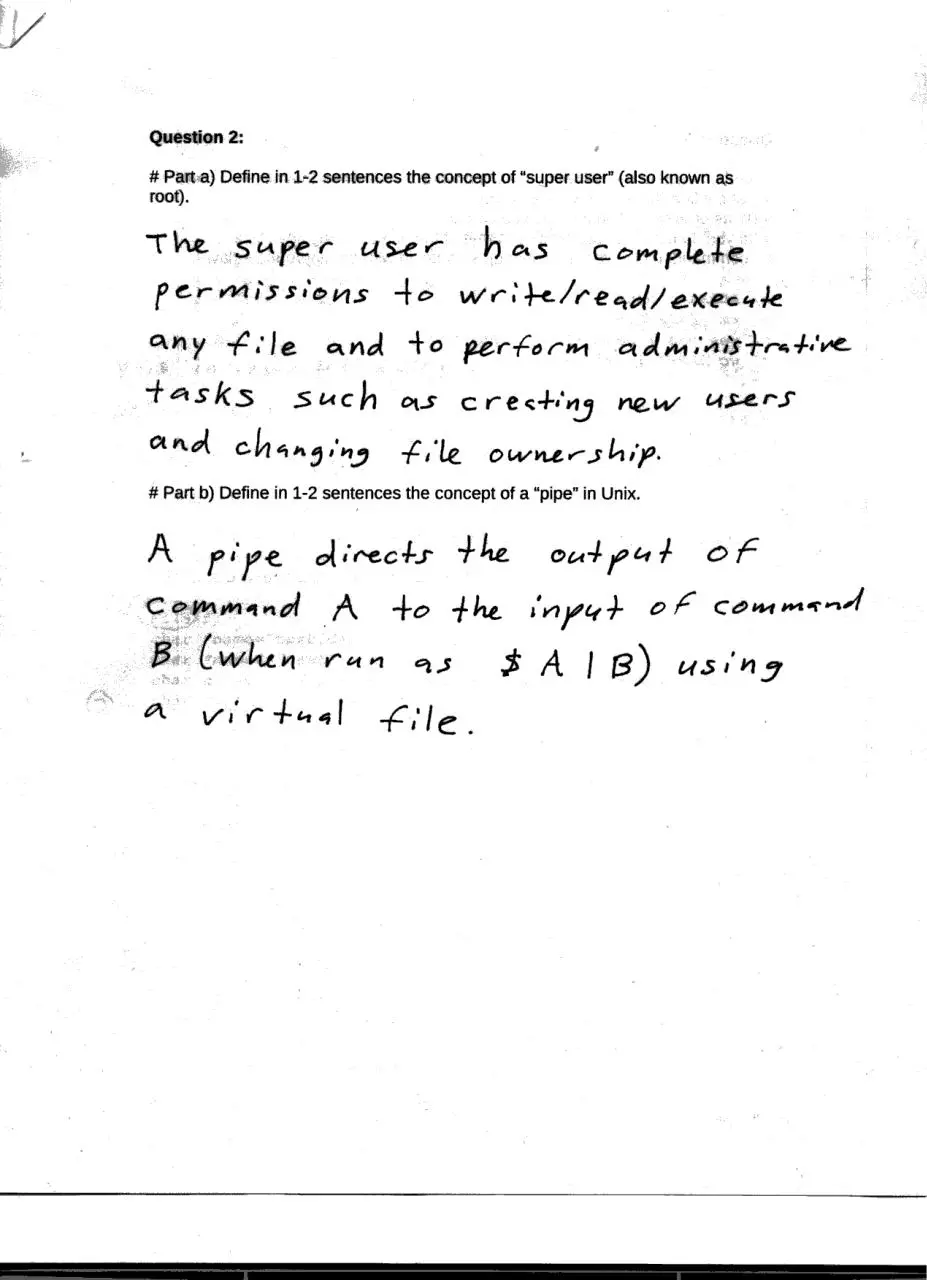 Question 2:
# Part a) Define in 1-2 sentences the concept of “super user” (also known as
root).
The super user has complete
permissions to write/read/execute
any file and to perform administrative
tasks such as creating new users
and changing file ownership.
# Part b) Define in 1-2 sentences the concept of a “pipe” in Unix.
A pipe directs the output of
command A to the input of command
B (when run as $ A | B) using
a virtual file.